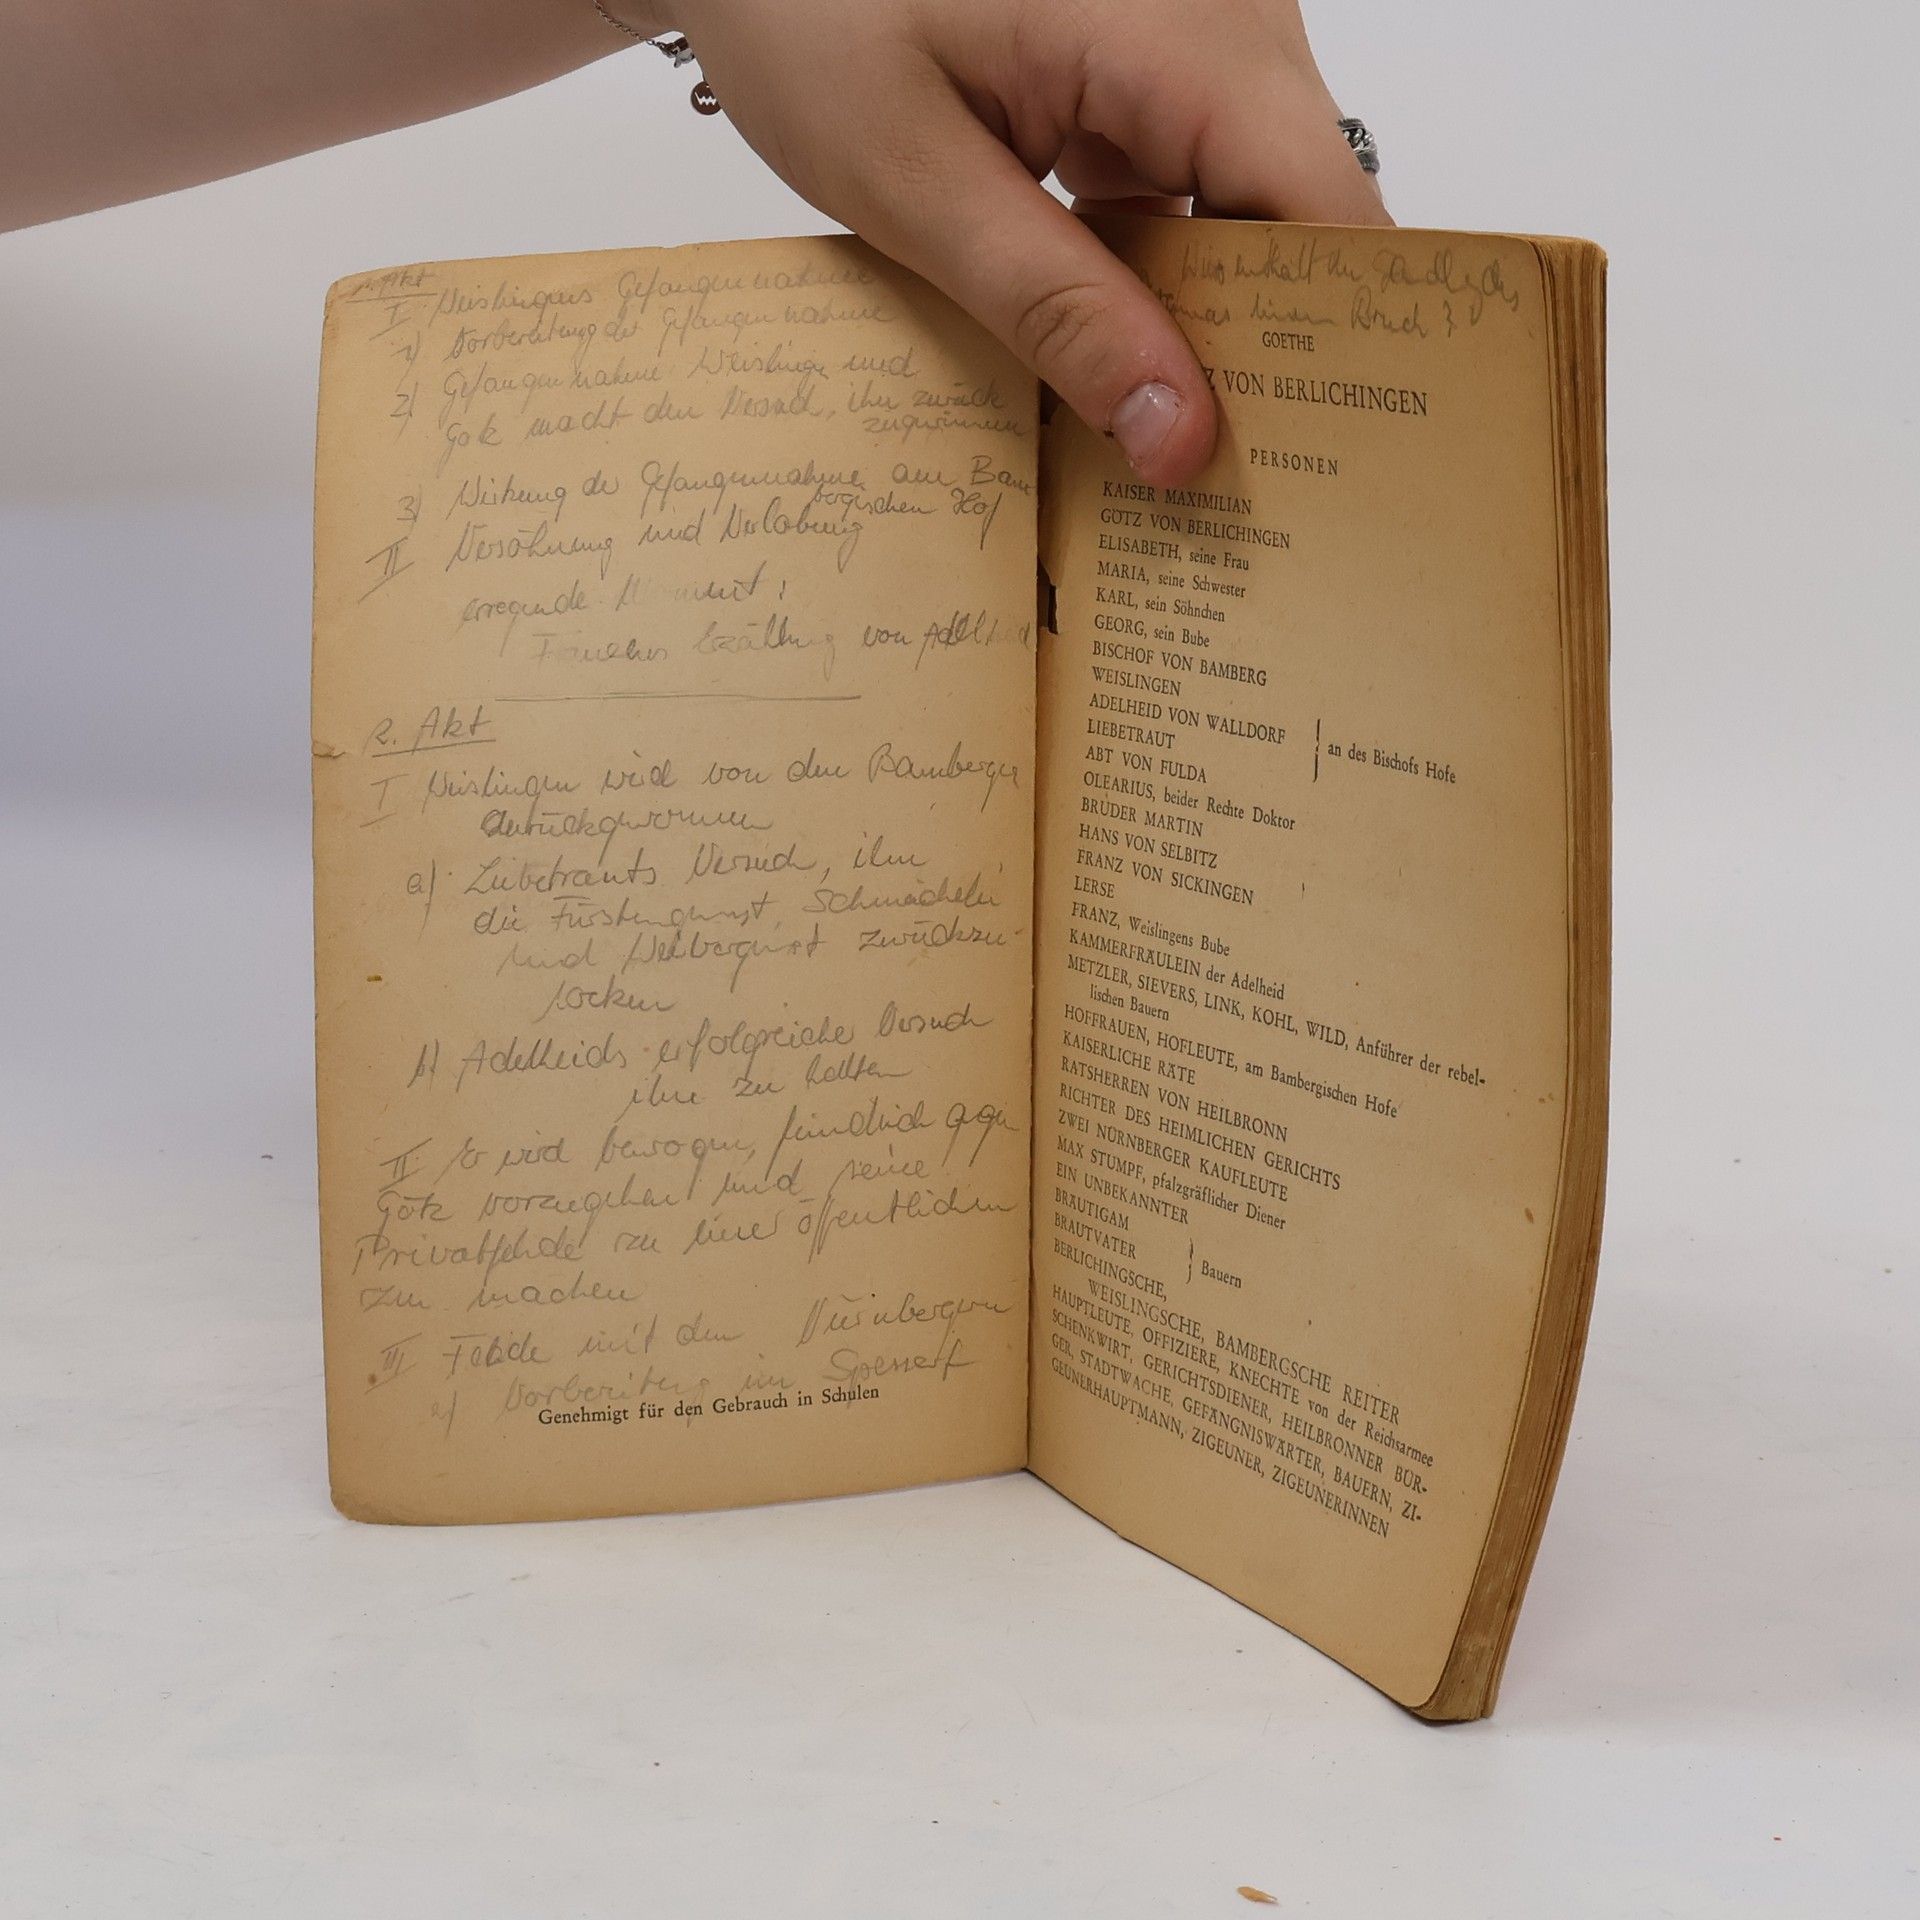 1. Akt
I. Weislingens Gefangennahme
1) Vorbereitung der Gefangennahme
2) Gefangennahme Weislingens und
Götz macht den Versuch, ihn zurück
zugewinnen
3) Wirkung der Gefangennahme am Bam
bergischen Hof
II Versöhnung und Verlobung
erregende Moment:
Erzählung von Adelheid
2. Akt
I Weislingen wird von den Bamberger
zurückgewonnen
a) Liebetrauts Versuch, ihn
die Fürstengunst, Schmeichelei
und Weibergunst zurückzu-
locken
b) Adelheids erfolgreiche Versuch
ihn zu halten
II Er wird bewogen, feindlich gegen
Götz vorzugehen und seine
Privatfehde zu einer öffentlichen
zu machen
III Fehde mit den Nürnbergern
a) Vorbereitung im Spessart
Genehmigt für den Gebrauch in Schulen
enthält
Bruch?
GOETHE
Z VON BERLICHINGEN
PERSONEN
KAISER MAXIMILIAN
GÖTZ VON BERLICHINGEN
ELISABETH, seine Frau
MARIA, seine Schwester
KARL, sein Söhnchen
GEORG, sein Bube
BISCHOF VON BAMBERG
WEISLINGEN
ADELHEID VON WALLDORF
LIEBETRAUT
an des Bischofs Hofe
ABT VON FULDA
OLEARIUS, beider Rechte Doktor
BRUDER MARTIN
HANS VON SELBITZ
FRANZ VON SICKINGEN
LERSE
FRANZ, Weislingens Bube
KAMMERFRÄULEIN der Adelheid
METZLER, SIEVERS, LINK, KOHL, WILD, Anführer der rebel-
lischen Bauern
HOFFRAUEN, HOFLEUTE, am Bambergischen Hofe
KAISERLICHE RÄTE
RATSHERREN VON HEILBRONN
RICHTER DES HEIMLICHEN GERICHTS
ZWEI NÜRNBERGER KAUFLEUTE
MAX STUMPF, pfalzgräflicher Diener
EIN UNBEKANNTER
BRÄUTIGAM
BRAUTVATER
Bauern
BERLICHINGSCHE,
WEISLINGSCHE, BAMBERGSCHE REITER
HAUPTLEUTE, OFFIZIERE, KNECHTE von der Reichsarmee
SCHENKWIRT, GERICHTSDIENER, HEILBRONNER BÜR-
GER, STADTWACHE, GEFÄNGNISWÄRTER, BAUERN, ZI-
GEUNERHAUPTMANN, ZIGEUNER, ZIGEUNERINNEN